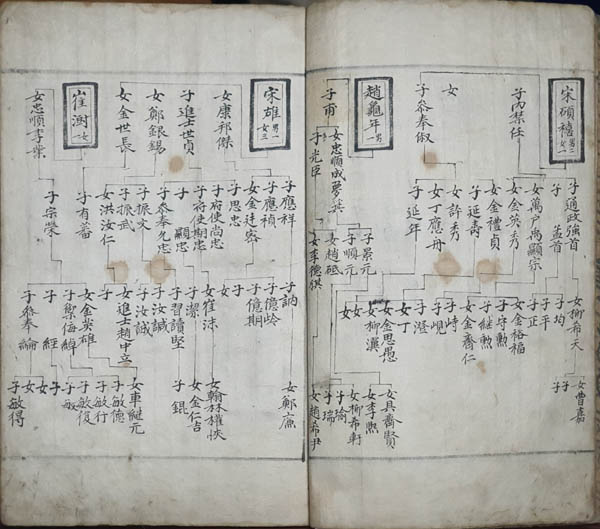 宋碩禧 男二 女一
子丙禁任
女
子參奉俶
趙龜年 一男
子甫
子通政強首
子孟首
女萬戶禹顯宗
女金英秀
女金禮貞
子延壽
女許秀
女丁應舟
子延年
女忠順成夢英
子光臣
女柳希天
子均
子平
子正
女金裕福
子守勲
子継勲
女金齋仁
子峙
子峴
子澄
女丁
女金思愚
女柳漢
女
子景元
子順元
女趙砥
女李德祺
女曹嘉
子
子
女具齋賢
女李熙
女柳希軒
子瑜
子瑞
女趙希尹
宋雄 男一 女三
女康邦傑
子進士世貞
女鄭銀錫
女金世長
崔澍 女
女忠順李業
子應祥
子應禎
女金廷密
子思忠
子府使尚忠
子府使期忠
子顯忠
子參奉允忠
子振文
子振武
女洪汝仁
子有蕃
子宗榮
子訥
子億岭
子億期
子
女崔洙
子潔
子習讀堅
子汝誠
子汝誠
女進士趙中立
女
女金英雄
子察訪海
子經
子參奉綸
女鄭廉
女翰林權悏
女金仁吉
子錕
女車继元
子敏德
子敏行
子敏復
子敏
子
女
女
子敏得